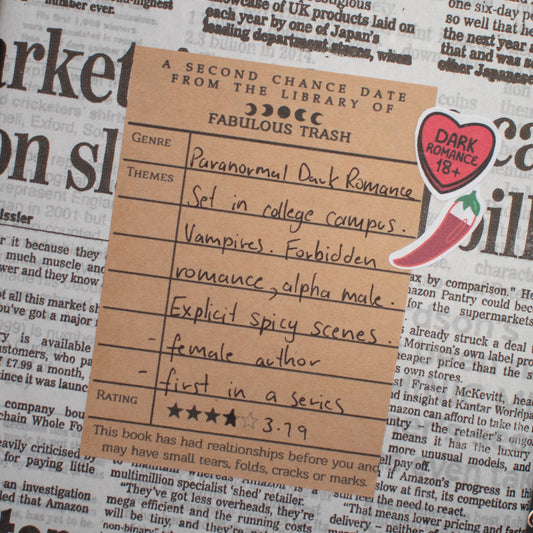 A SECOND CHANCE DATE
FROM THE LIBRARY OF
FABULOUS TRASH
GENRE
Paranormal Dark Romance
THEMES
Set in college campus.
Vampires. Forbidden
romance, alpha male.
Explicit spicy scenes.
- female author
- first in a series
RATING
3.79
This book has had realtionships before you and
may have small tears, folds, cracks or marks.
DARK
ROMANCE
18+
number ever.
showcase of UK products laid on
each year by one of Japan's
leading department stores, when
one six-day pe
so well that he
the next year a
and that was so
other Japanese
2.3 billion in 2014.
arket
on sl
issler
r it because they
much muscle and
wer and they know
ot all this market sh
ou've got a major
ry is available
ustomers, who pa
£7.99 a month,
since it was launc
company bou
chain Whole Fo
heavily criticised by
for paying little
an investigation
led that Amazon
multimillion specialist 'shed' retailer.
"They've got less overheads, they're
mega efficient and the running costs
will be tiny, and they're not
non-binary
ax by comparison." He
azon Pantry could bec
for the supermarkets
already struck a deal
Morrison's own label pro
heaper price than the s
s own stores.
st Fraser McKevitt, head
d insight at Kantar Worldpan
mazon can afford to take the l
ntry - the retailer's ongo
means it has the luxury
more unusual models, and
ll pay off.
if Amazon's progress in th
slow at first, its competitors wi
feel the need to react.
"That means lower pricing and faste
delivery – neither of